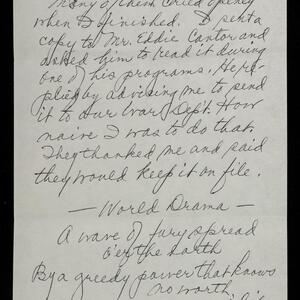 many of them cried openly
when I finished. I sent a
copy to Mr. Eddie Cantor and
asked him to read it during
one of his programs. He re-
plied by advising me to send
it to our War Dept. How
naive I was to do that.
They thanked me and said
they would keep it on file.
— World Drama —
A wave of fury spread
o'er the earth
By a greedy power that knows
no worth